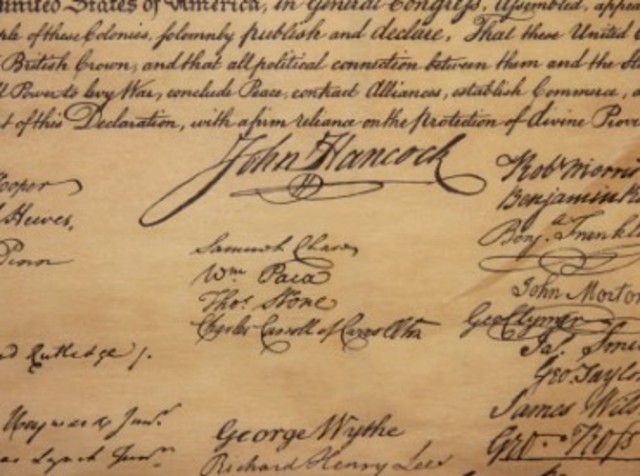 United States of America, in General Congress, Assembled,
ple of these Colonies, solemnly publish and declare, That these United
British Crown, and that all political connection between them and the
Power to levy War, conclude Peace, contract Alliances, establish Commerce,
t of this Declaration, with a firm reliance on the Protection of divine
John Hancock
Hooper
Hewes,
Penn
Samuel Chase
Wm. Paca
Thos. Stone
Charles Carroll of Carrollton
d Rutledge /.
Heyward Junr.
as Lynch Junr.
George Wythe
Richard Henry Lee
Robt Morris
Benjamin
Benj. Franklin
John Morton
Geo Clymer
Jas. Smith
Geo. Taylor
James Wilson
Geo. Ross